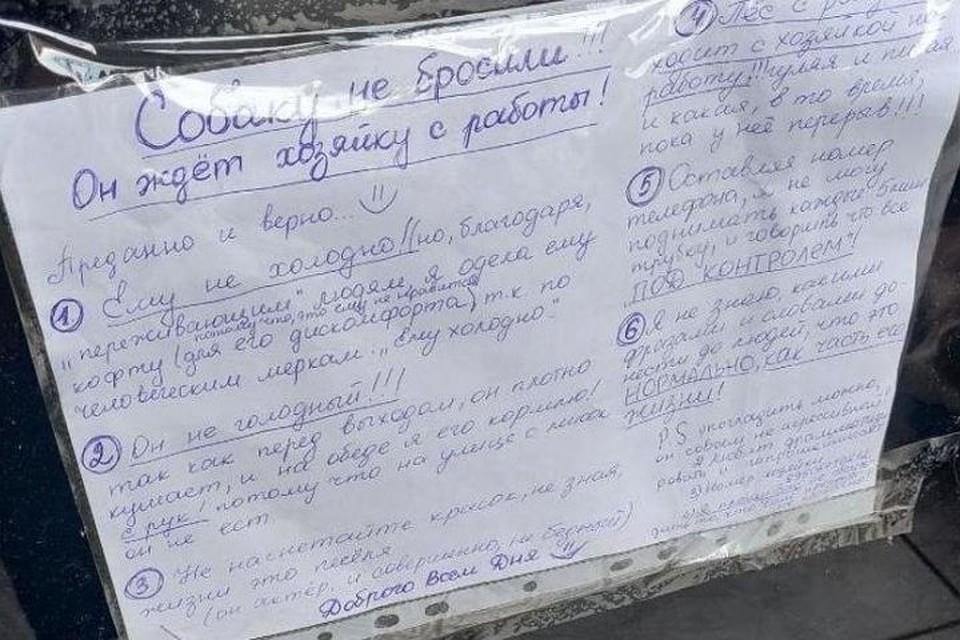 Собаку не бросили!!!
Он ждёт хозяйку с работы!
Преданно и верно...
① Ему не холодно!! но, благодаря,
"переживающим" людям, я одела ему
потому что, это ему не нравится
кофту (для его дискомфорта) т.к. по
человеческим меркам "Ему холодно"
② Он не голодный!!!
так как перед выходом, он плотно
кушает, и на обеде я его кормлю!
с рук! потому что на улице с миски
он не ест
③ Не нагнетайте красок, не зная,
жизни это пёселя
(он актёр, и совершенно, не бедный)
Доброго Всем Дня
④ Пёс с
ходит с хозяйкой на
работу!!! гуляя и писая
и какая, в то время,
пока у неё перерыв!!!
⑤ Оставляя номер
телефона, я не могу
поднимать каждые 5 мин
трубку, и говорить что всё
ПОД "КОНТРОЛЕМ"!
⑥ Я не знаю, какими
фразами и словами до-
нести до людей, что это
НОРМАЛЬНО, как часть его
жизни!
P.S погладить можно,
он совсем не агрессивный